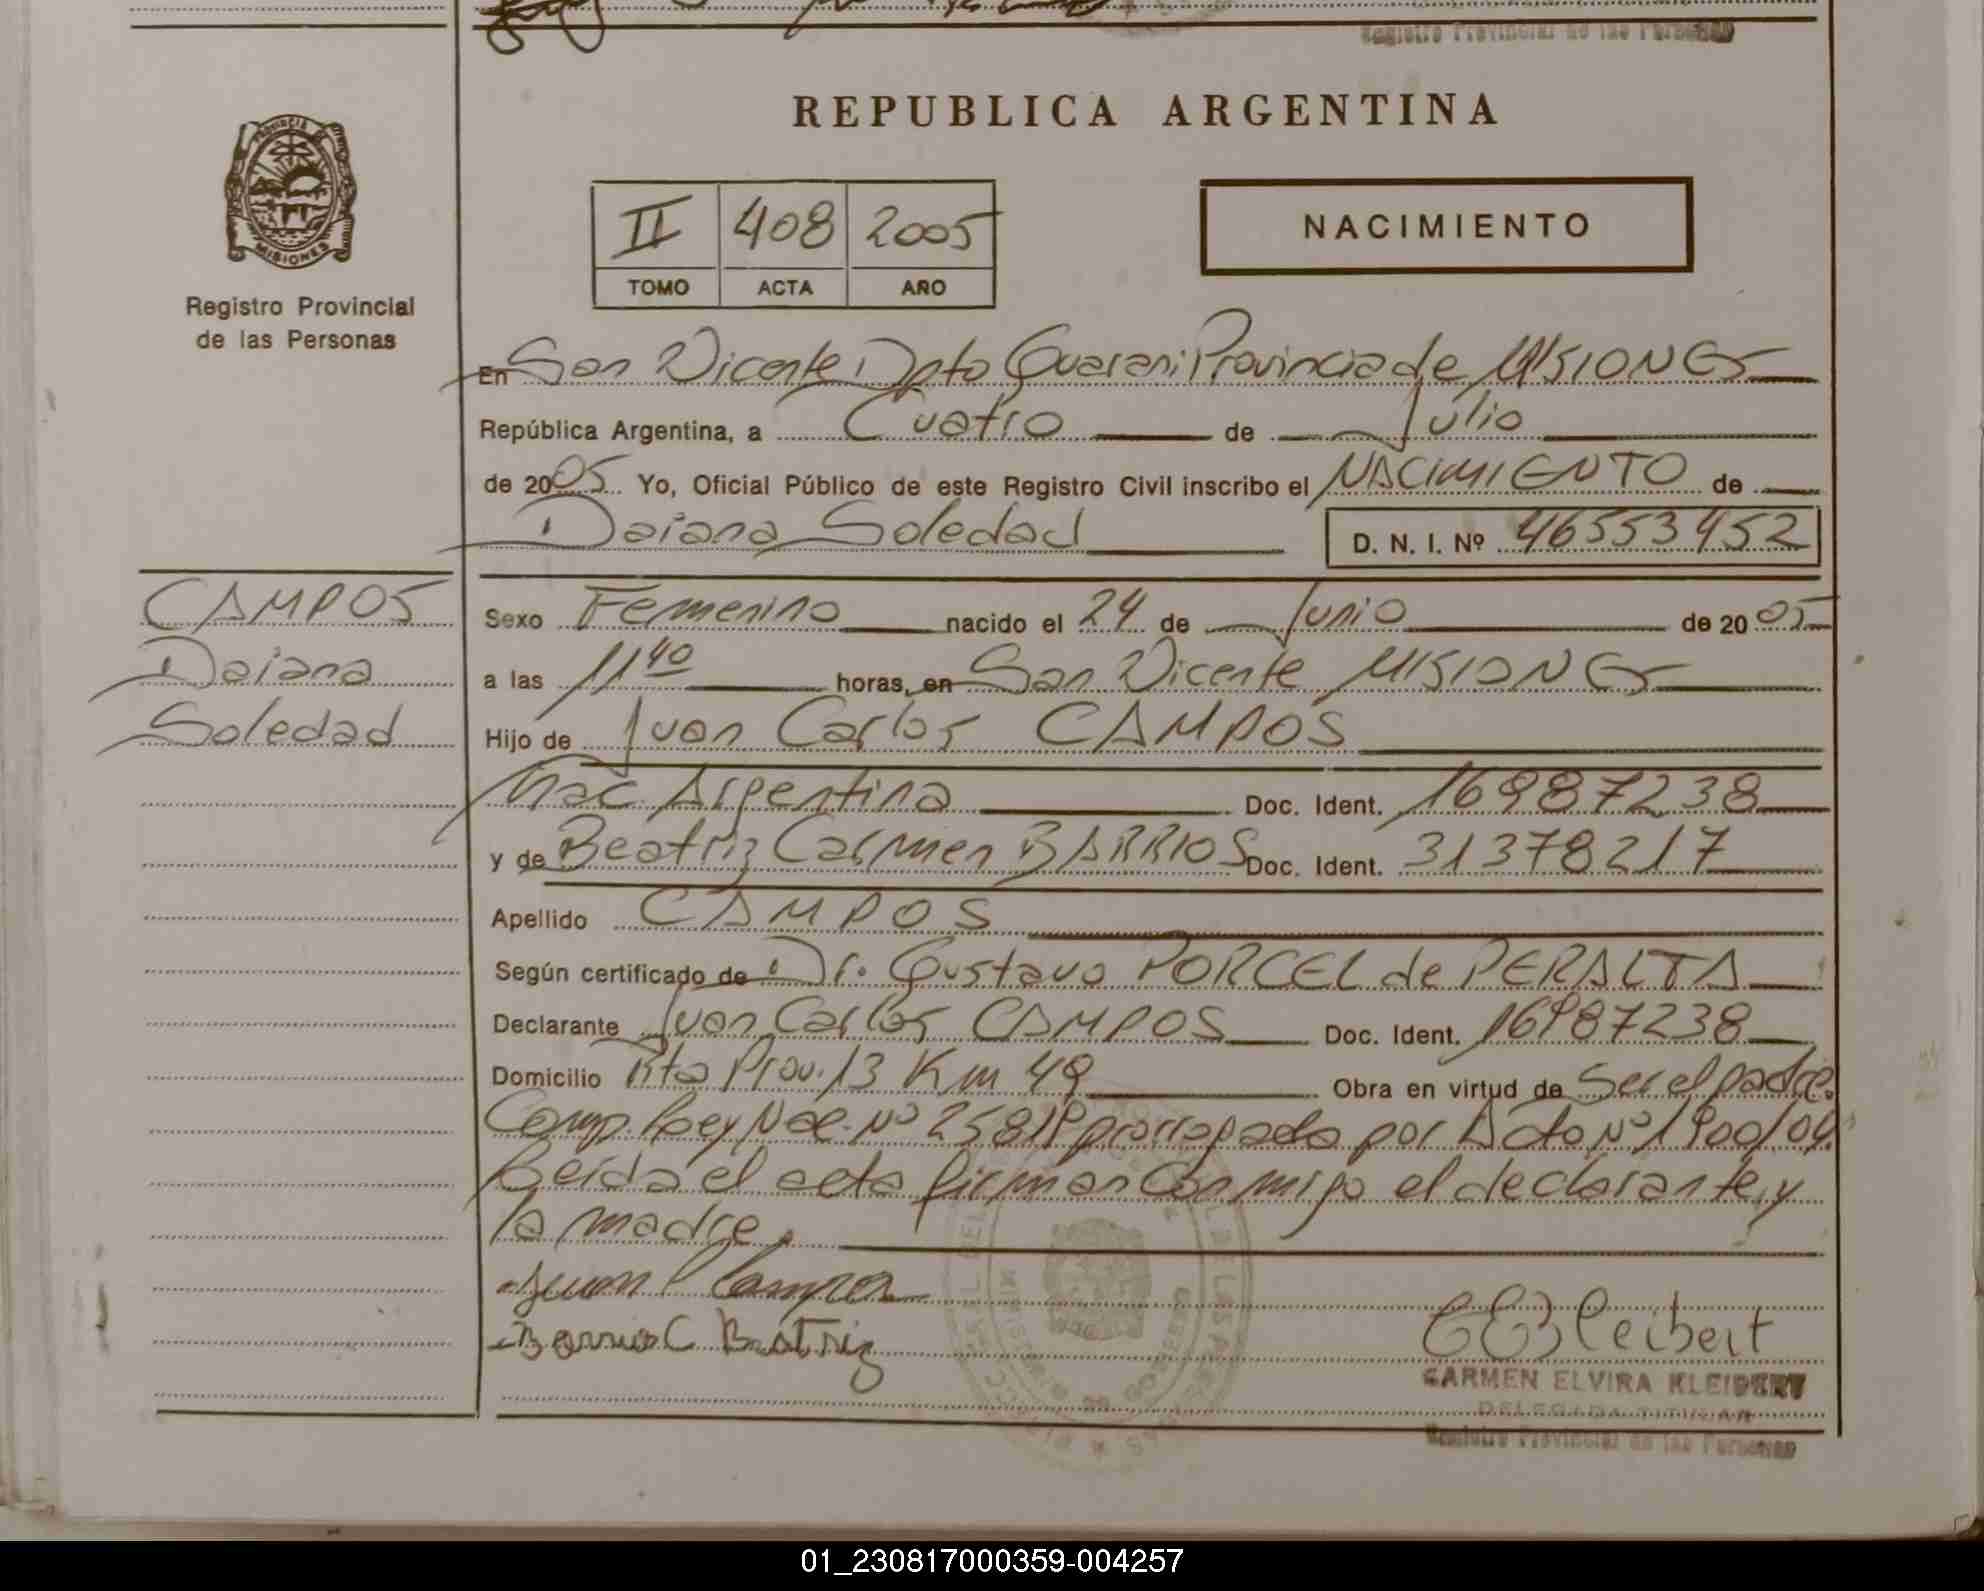 Registro Provincial de las Personas
REPUBLICA ARGENTINA
Provincia de
MISIONES
Registro Provincial
de las Personas
II 408 2005
TOMO ACTA AÑO
NACIMIENTO
En San Vicente Dpto Guarani Provincia de MISIONES
República Argentina, a Cuatro de Julio
de 2005 Yo, Oficial Público de este Registro Civil inscribo el NACIMIENTO de
Daiana Soledad D. N. I. Nº 46553452
CAMPOS
Daiana
Soledad
Sexo Femenino nacido el 24 de Junio de 2005
a las 11 40 horas, en San Vicente MISIONES
Hijo de Juan Carlos CAMPOS
Nac. Argentina Doc. Ident. 16987238
y de Beatriz Carmen BARRIOS Doc. Ident. 31378217
Apellido CAMPOS
Según certificado de Dr. Gustavo PORCEL de PERALTA
Declarante Juan Carlos CAMPOS Doc. Ident. 16987238
Domicilio Rta Prov. 13 Km 49 Obra en virtud de Ser el padre.
Comp. Ley Nac. Nº prorrogada por Nº 1900/04.
Leida el acta firman conmigo el declarante y
la madre.
Juan Campos
Barrio C Beatriz
CEKleibert
CARMEN ELVIRA KLEIBERT
DELEGADA TITULAR
Registro Provincial de las Personas
01_230817000359-004257